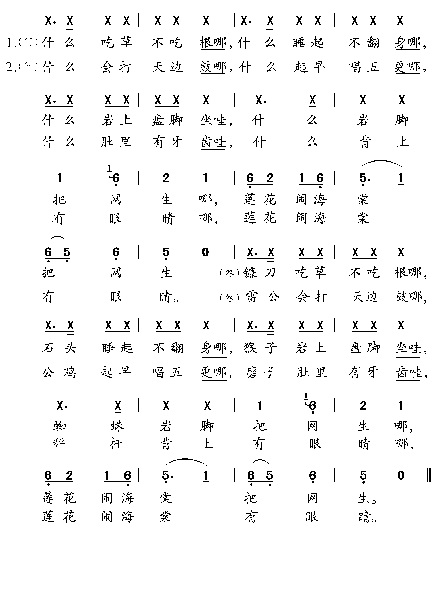 X. X X X | X X X X | X. X X X | X X X X
1.(女)什么 吃草 不吃 根哪, 什么 睡起 不翻 身哪,
2.(女)什么 会打 天边 鼓哪, 什么 起早 唱五 更哪,
X. X X X | X X X X | X. X | X X
什么 岩上 盘脚 坐哇, 什 么 岩 脚
什么 肚里 有牙 齿哇, 什 么 背 上
1 1 6 | 2 1 | 6 2 1 6 | 5. 1
把 网 生 哪, 莲花 闹海 棠
有 眼 睛 哪, 莲花 闹海 棠
6 5 6 | 5 0 | X. X X X | X X X X
把 网 生 (男)镰刀 吃草 不吃 根哪,
有 眼 睛。 (男)雷公 会打 天边 鼓哪,
X. X X X | X X X X | X X X X | X X X X
石头 睡起 不翻 身哪, 猴子 岩上 盘脚 坐哇,
公鸡 起早 唱五 更哪, 磨子 肚里 有牙 齿哇,
X. X | X X | 1 1 6 | 2 1
蜘 蛛 岩 脚 把 网 生 哪,
杆 背 上 有 眼 睛 哪,
6 2 1 6 | 5. 1 | 6 5 6 | 5 0
莲花 闹海 棠 把 网 生。
莲花 闹海 棠 有 眼 睛。